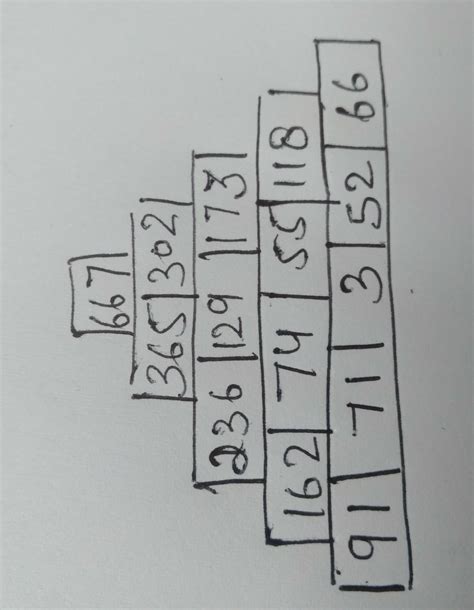 667
365 302
236 129 173
162 74 55 118
91 71 3 52 66